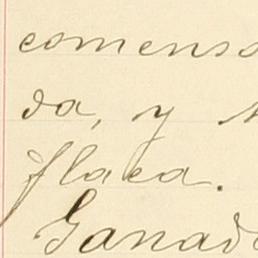 comenso
da, y
flaca.
Ganad